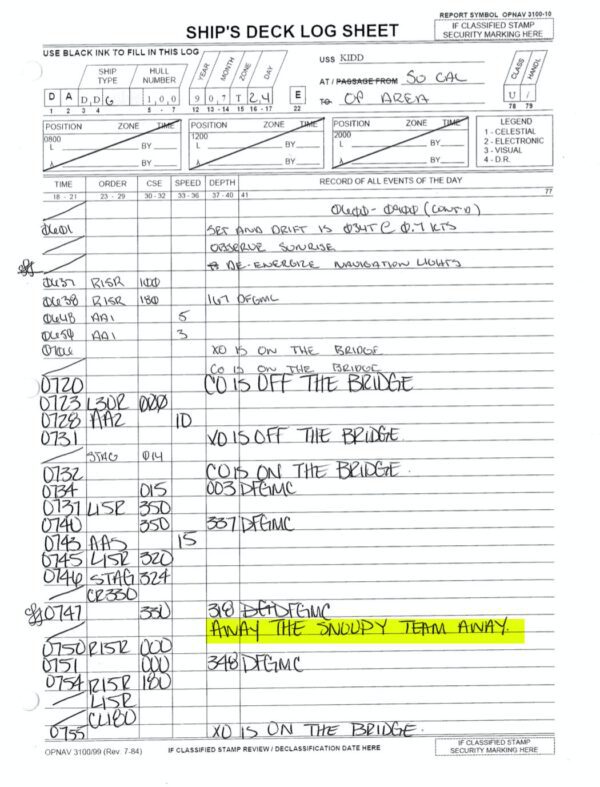 REPORT SYMBOL OPNAV 3100-10
SHIP'S DECK LOG SHEET
IF CLASSIFIED STAMP
SECURITY MARKING HERE
USE BLACK INK TO FILL IN THIS LOG
USS KIDD
SHIP TYPE HULL NUMBER YEAR MONTH ZONE DAY
AT / PASSAGE FROM SO CAL
CLASS HANDL
D A D D G 1 0 0 9 0 7 T 2 4 E
TO OP AREA
U /
1 2 3 4 5 - 7 12 13 - 14 15 16 - 17 22
78 79
POSITION ZONE TIME POSITION ZONE TIME POSITION ZONE TIME LEGEND
0800 1200 2000
1 - CELESTIAL
L BY L BY L BY
2 - ELECTRONIC
3 - VISUAL
BY BY BY
4 - D.R.
TIME ORDER CSE SPEED DEPTH RECORD OF ALL EVENTS OF THE DAY
18 - 21 23 - 29 30 - 32 33 - 36 37 - 40 41 77
0600 - 0900 (CONT'D)
0601 SET AND DRIFT IS 034T @ 0.7 KTS
OBSERVE SUNRISE
DE-ENERGIZE NAVIGATION LIGHTS
0637 R15R 100
0638 R15R 180 167 DFGMC
0648 AA1 5
AA1 3
XO IS ON THE BRIDGE
CO IS ON THE BRIDGE
0720 CO IS OFF THE BRIDGE
0723 L30R 000
0728 AA2 10
0731 XO IS OFF THE BRIDGE.
STAG 014
0732 CO IS ON THE BRIDGE.
0734 015 003 DFGMC
0737 L15R 350
0740 350 337 DFGMC
0743 AAS 15
0745 L15R 320
0746 STAG 324
CR330
0747 330 318 DFGMC
AWAY THE SNOUPY TEAM AWAY.
0750 R15R 000
0751 000 348 DFGMC
0754 R15R 180
L15R
CL180
0755 XO IS ON THE BRIDGE.
OPNAV 3100/99 (Rev. 7-84) IF CLASSIFIED STAMP REVIEW / DECLASSIFICATION DATE HERE
IF CLASSIFIED STAMP
SECURITY MARKING HERE